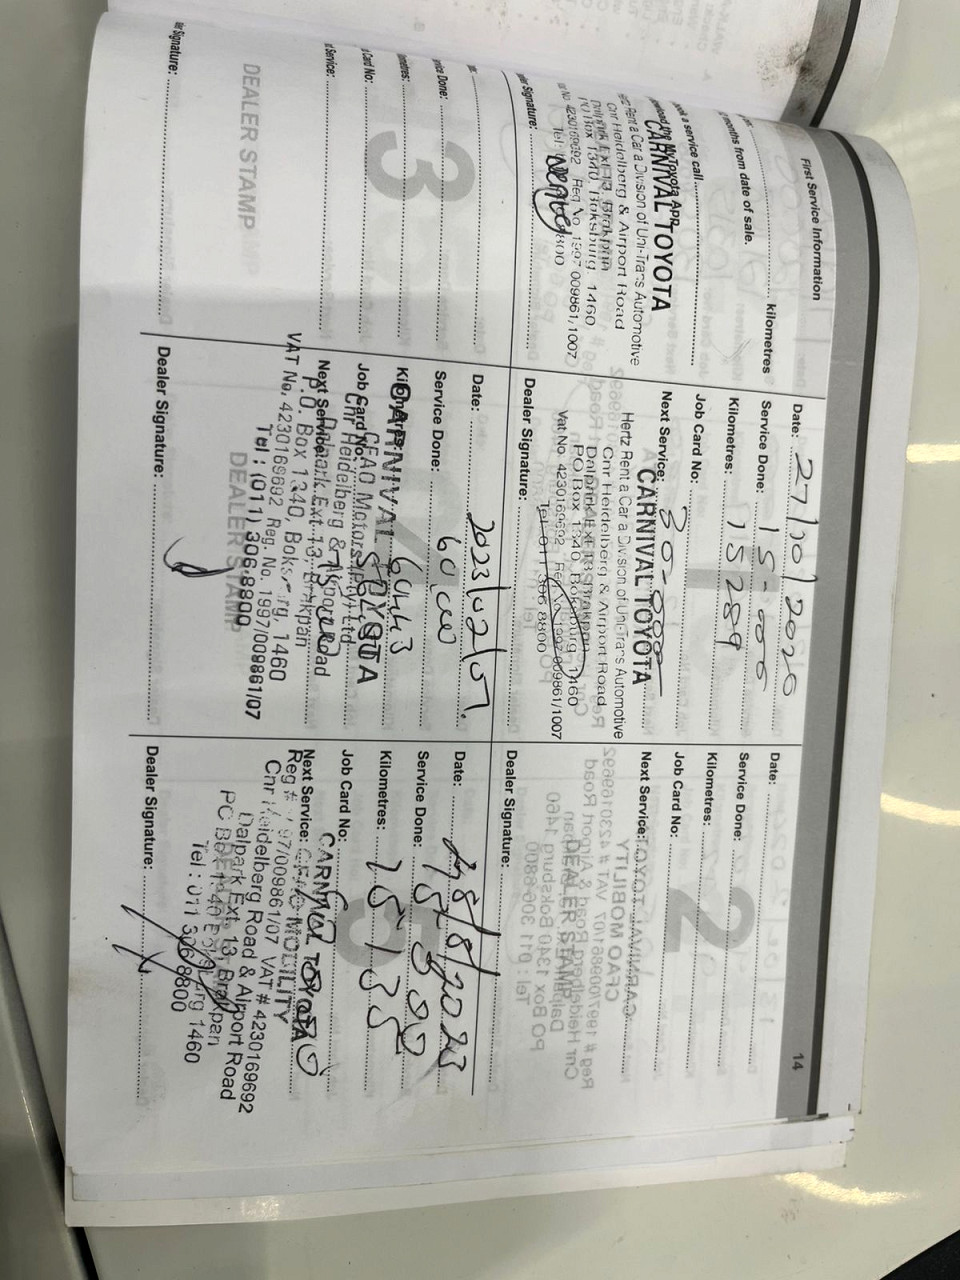 14
First Service Information
kilometres
months from date of sale.
a service call
CARNIVAL TOYOTA
Rent a Car a Division of Uni-Trans Automotive
Cnr Heidelberg & Airport Road
Dalpark Ext 13, Brakpan
PO Box 1340, Boksburg, 1460
4230169692 Reg No 1997 009861/1007
Signature:
Date: 27/10/2020
Service Done: 15-000
Kilometres: 15289
Job Card No:
Next Service: 30-000
CARNIVAL TOYOTA
Hertz Rent a Car a Division of Uni-Trans Automotive
Cnr Heidelberg & Airport Road
Dalpark Ext 13 Brakpan
PO Box 1340, Boksburg, 1460
Vat No. 4230169692 Reg No 1997 009861/1007
Tel 011 306 8800
Dealer Signature:
Date:
Service Done:
Kilometres:
Job Card No:
Next Service:
2
DEALER STAMP
Dealer Signature:
Done:
Card No:
Service:
3
DEALER STAMP
Signature:
Date: 2023/02/07.
Service Done: 60 000
Kilometres: 60443
Job Card No:
Next Service:
CARNIVAL TOYOTA
CFAO Motors (Pty) Ltd
Cnr Heidelberg & Airport Road
Dalpark Ext. 13, Brakpan
P.O. Box 1340, Boksburg, 1460
VAT No. 4230169692 Reg. No. 1997/009861/07
Tel : (011) 306-8800
DEALER STAMP
Dealer Signature:
Date: 28/8/2023
Service Done: 75 000
Kilometres: 75135
Job Card No:
Next Service:
CARNIVAL TOYOTA
CFAO MOBILITY
Reg # 1997/009861/07 VAT # 4230169692
Cnr Heidelberg Road & Airport Road
Dalpark Ext. 13, Brakpan
PO Box 1340 Boksburg 1460
Tel : 011 306 8800
Dealer Signature: